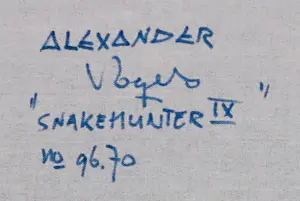 ALEXANDER
Vögels
"SNAKEHUNTER IX"
no 96.70